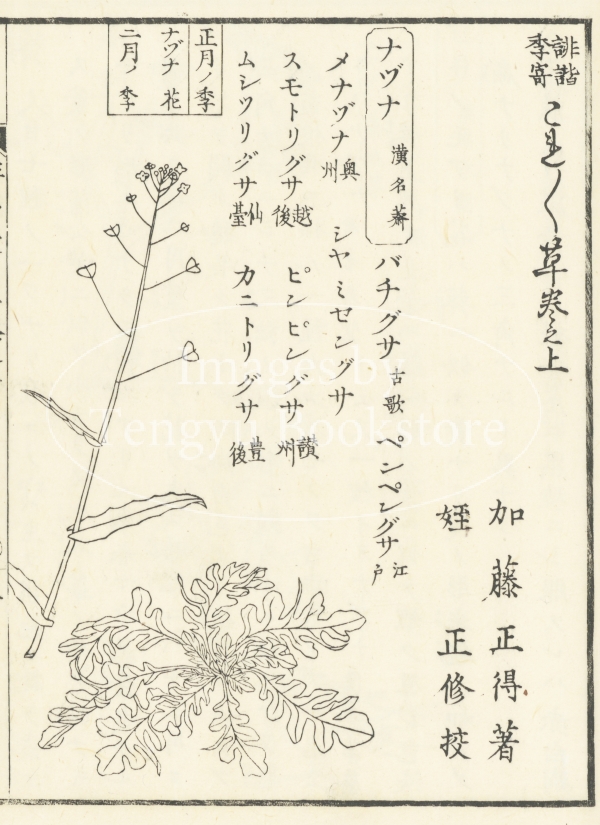 誹諧季寄 これ〱草 巻之上
加藤正得著
姪 正修挍
ナヅナ 漢名薺 バチグサ 古歌 ペンペングサ 江戸
メナヅナ 奥州 シヤミセングサ
スモトリグサ 越後 ピンピングサ 讃州
ムシツリグサ 仙臺 カニトリグサ 豊後
正月ノ季
ナヅナ花
二月ノ季
Images by
Tengyu Bookstore